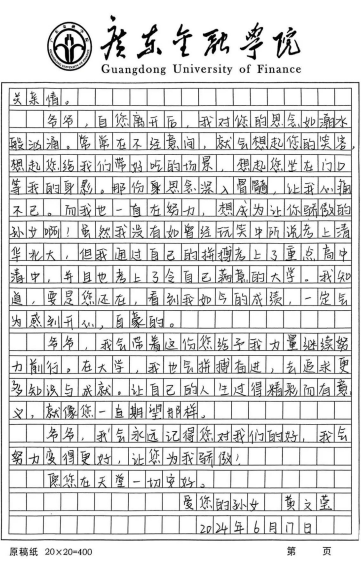 广东金融学院
Guangdong University of Finance
关亲情。
爷爷，自您离开后，我对您的思念如潮水
般汹涌。常常在不经意间，就会想起您的笑容，
想起您给我们带好吃的场景，想起您坐在门口
等我的身影。那份思念深入骨髓，让我心痛
不已。而我也一直在努力，想成为让你骄傲的
孙女啊！虽然我没有如曾经玩笑中所说考上清
华北大，但我通过自己的拼搏考上了重点高中
清中，并且也考上了令自己满意的大学。我知
道，要是您还在，看到我如今的成绩，一定会
为感到开心，自豪的。
爷爷，我会带着这份您给予我力量继续努
力前行。在大学，我也会拼搏奋进，去追求更
多知识与成就。让自己的人生过得精彩而有意
义，就像您一直期望那样。
爷爷，我会永远记得您对我们的好，我会
努力变得更好，让您为我骄傲！
愿您在天堂一切安好。
爱您的孙女 黄文莹
2024年6月17日
原稿纸 20×20=400 第 页